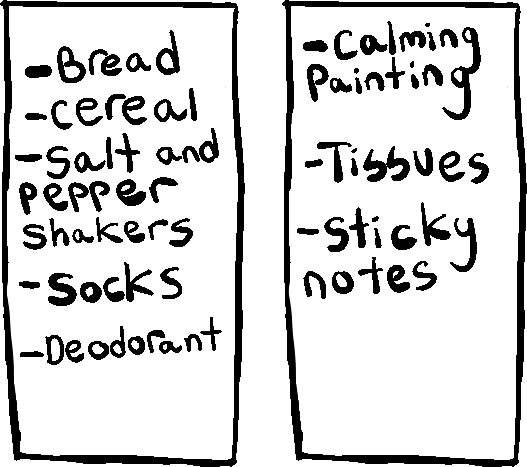 -Bread
-cereal
-Salt and
pepper
shakers
-Socks
-Deodorant
-Calming
Painting
-Tissues
-Sticky
notes